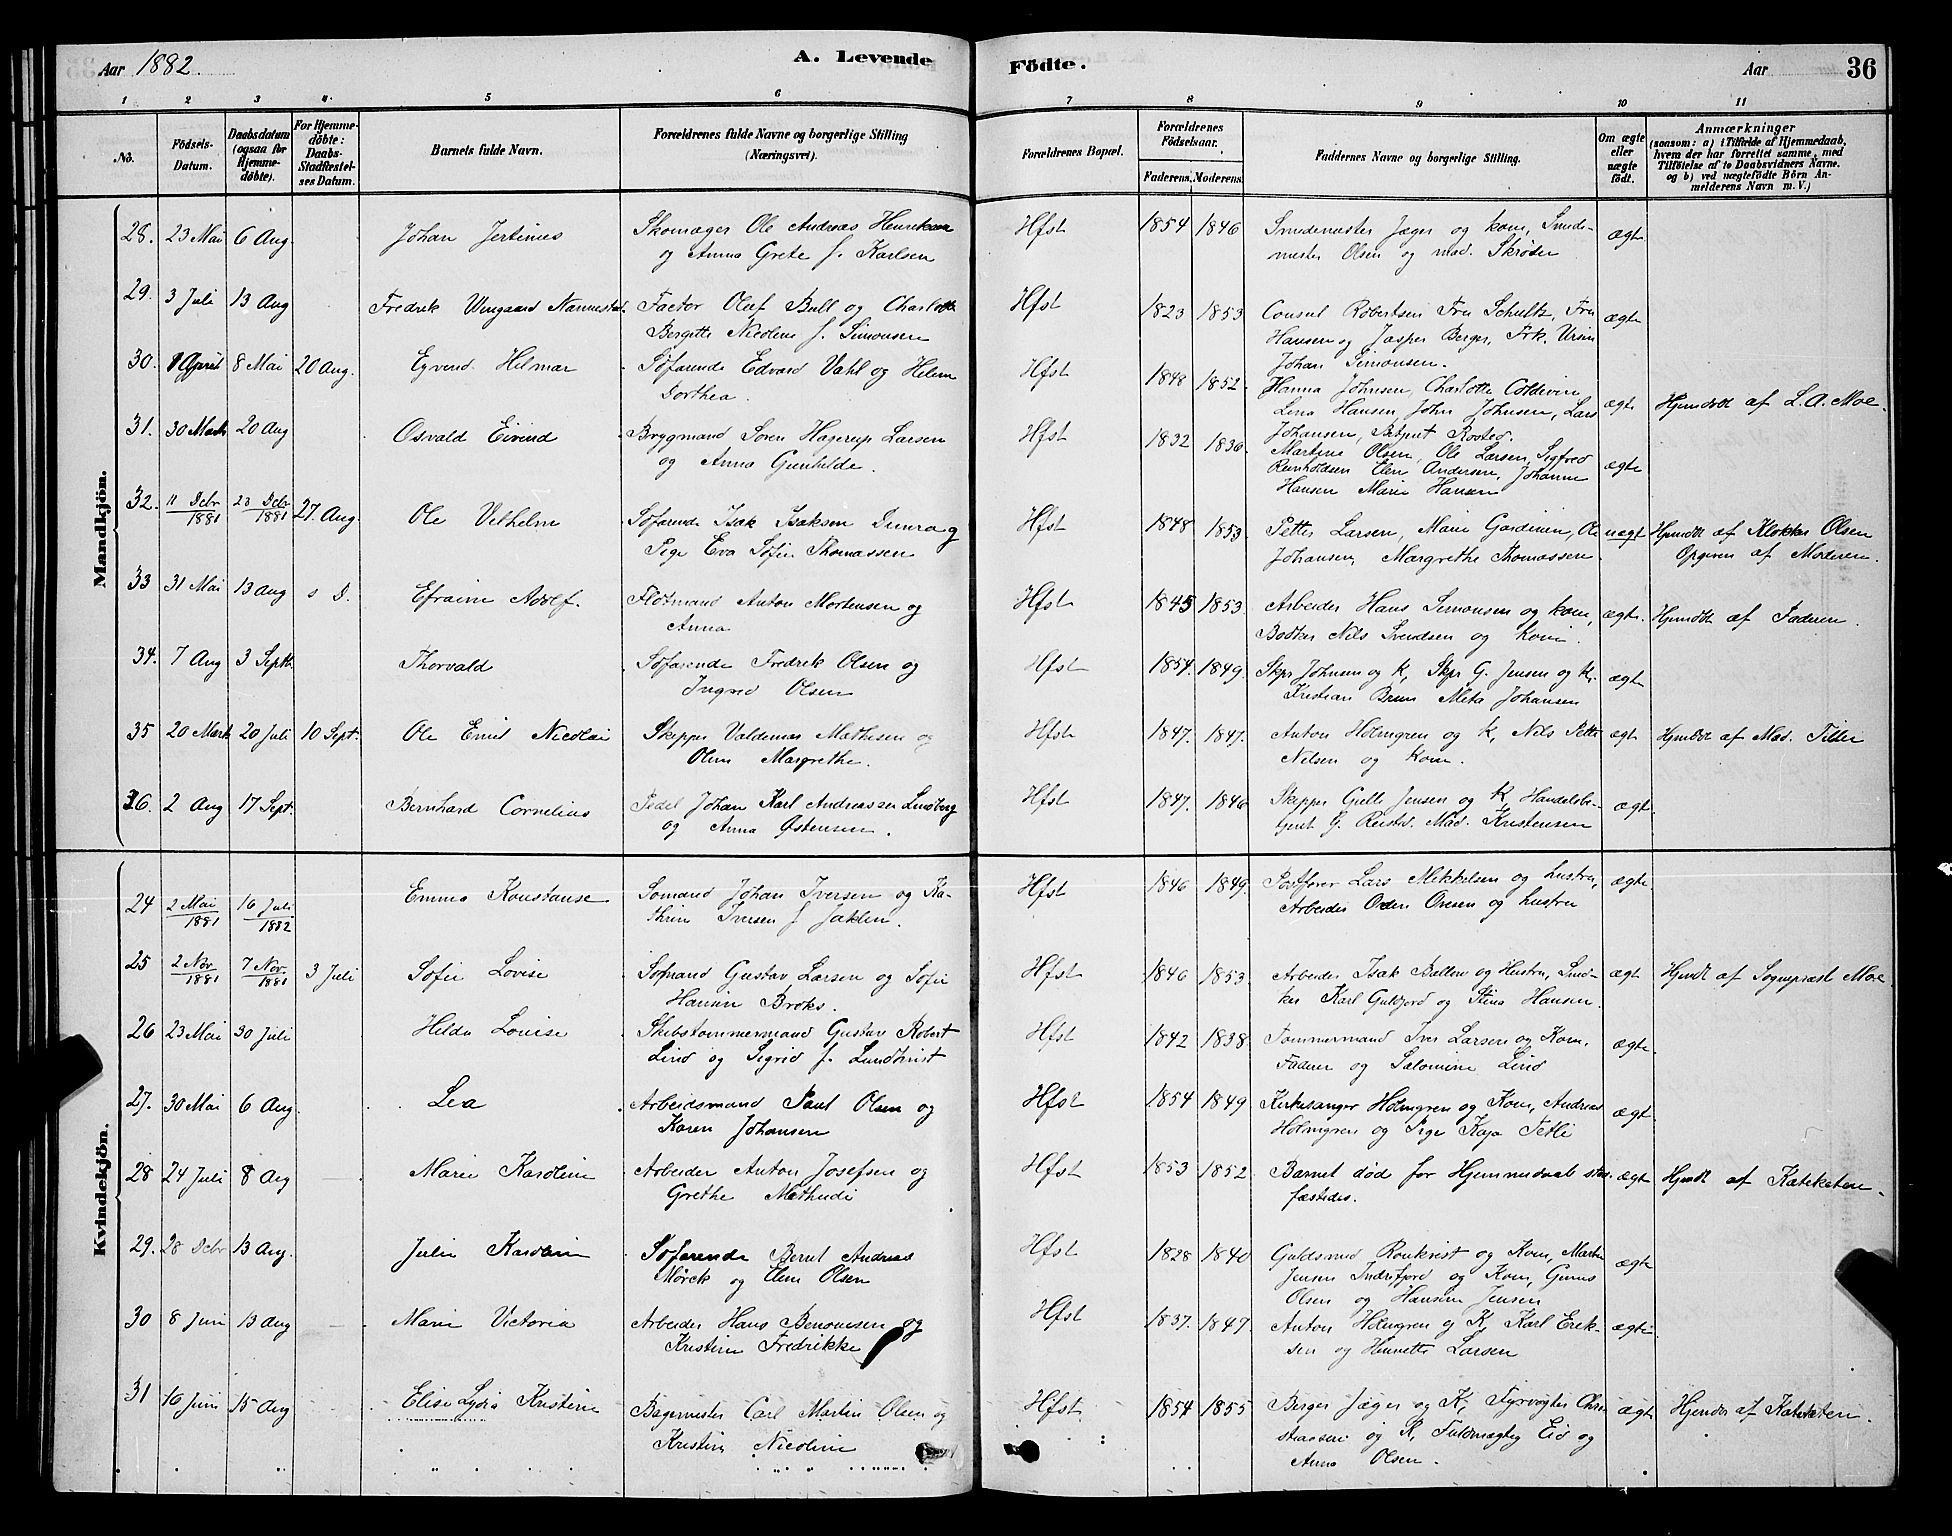 Aar 1882.
A. Levende
Födte.
Aar
36
1
2
3
4.
5
6
7
8
9
10
11
No.
Födsels-
Datum.
Daabsdatum
(ogsaa for
Hjemme-
döbte).
For Hjemme-
döbte:
Daabs-
Stadfæstel-
ses Datum.
Barnets fulde Navn.
Forældrenes fulde Navne og borgerlige Stilling
(Næringsvei).
Forældrenes Bopæl.
Forældrenes
Födselsaar.
Faderens.
Moderens.
Faddernes Navne og borgerlige Stilling.
Om ægte
eller
uægte
födt.
Anmærkninger
(saasom: a) i Tilfælde af Hjemmedaab,
hvem der har forrettet samme, med
Tilföielse af to Daabsvidners Navne.
og b) ved uægtefödte Börn An-
melderens Navn m. V.)
Mandkjön.
28. 23 Mai 6 Aug. Johan Jertinus Skomager Ole Andreas Henriksen Hfst 1854 1846 Smedemester Jæger og kone, Smede- ægte
og Anna Grete f. Karlsen mester Olsen og mad. Skrøder
29. 3 Juli 13 Aug Fredrik Wingaard Nannestad. Factor Oluf Bull og Charlotte Hfst 1823 1853 Consul Robertsen Fru Schultz, Fru ægte
Bergitte Nicoline f. Simonsen Hansen og Jasper Berger, Frk. Ursin
Johan Simonsen.
30. 8 April 8 Mai 20 Aug. Eyvend Hilmar Søfarende Edvard Vahl og Helene Hfst 1848 1852. Hanna Johnsen, Charlotte Coldevin ægte Hjemdøbt af L. A. Moe.
Dorthea. Lina Hansen, John Johnsen, Lars
Johansen, Rosted.
31. 30 Marts 20 Aug Osvald Eivind Bryggmand Søren Hagerup Larsen Hfst 1832 1836. Martine Olsen, Ole Larsen, Sigfred ægte
og Anna Gunhilde. Reinholdsen Elen Andersen, Johanne
Hansen Marie Hansen
32. 11 Debr 1881 23 Debr 1881 27. Aug. Ole Vilhelm Søfarende Isak Isaksen og Hfst 1848 1853. Petter Larsen, Marie Gardinien, Ole uægt Hjemdøbt af Klokker Olsen
Pige Eva Sofie Thomassen Johansen, Margrethe Thomassen Opgiven af Moderen.
33 31 Mai 13 Aug s D. Efraim Adolf. Flötmand Anton Mortensen og Hfst 1845 1853. Arbeider Hans Simonsen og kone, ægte. Hjemdöbt af Faderen.
Anna Bødker Nils Svendsen og Kone.
34. 7 Aug 3 Septb. Thorvald Søfarende Fredrik Olsen og Hfst 1854. 1849. Skpr Johnsen og K, Skpr G. Jensen og K. ægte
Ingrid Olsen Kristian Bruun Meta Johansen
35 20 Mart 20 Juli 10 Sept. Ole Emil Nicolai Skipper Valdemar Mathisen og Hfst 1847. 1847. Anton Holmgren og K, Nils Petter ægte Hjemdøbt af Mad. Tiller
Oline Margrethe. Nilsen og Kone.
36. 2 Aug 17 Sept. Bernhard Cornelius Pedel Johan Karl Andreassen Lindberg Hfst 1847. 1846 Skipper Gulle Jensen og K, Handelsbe- ægte
og Anna Østensen. tjent G. Reistad. Mad. Kristensen
Kvindekjön.
24 2 Mai 1881 16 Juli 1882 Emma Konstanse Sømand Johan Iversen og Ka- Hfst 1846 1849. Postfører Lars Mikkelsen og hustru, ægte
thrine Iversen f Jaklin. Arbeider Oden Ovesen og hustru
25 2 Nov. 1881 7 Nov. 1881 3 Juli Sofie Lovise Sømand Gustav Larsen og Sofie Hfst 1846 1853. Arbeider Isak Ballow og Hustru, Snid- ægt Hjemdt af Sognepræst Moe.
Hansine Broks. ker Karl Guldfjord og Stina Hansen.
26 23 Mai 30 Juli Hilda Louise Skibstømmermand Gustav Robert Hfst 1842 1838. Tømmermand Iver Larsen og Kone, ægte.
Lind og Sigrid f. Lundkvist Faderen og Salomine Lind
27. 30 Mai 6 Aug. Lea Arbeidsmand Paul Olsen og Hfst 1854 1849 Kirkesanger Holmgren og Kone, Andreas ægte
Karen Johansen Holmgren og Pige Kaja Tetli
28 24 Juli 8 Aug Marie Karoline Arbeider Anton Josefsen og Hfst 1853 1852. Barnet död før Hjemmedaab stad- ægte Hjemdt af Kateketen.
Grethe Mathilde fæstedes.
29. 28 Debr 13 Aug. Julie Karoline Søfarende Bernt Andreas Hfst 1828 1840 Guldsmed Ronkvist og Kone, Martin ægte
Mørck og Eline Olsen Jensen Indrefjord og Kone,
Olsen og Hansine Jensen
30 8 Juni 13 Aug Marie Victoria Arbeider Hans Benonisen og Hfst 1837. 1847. Anton Holmgren og K, Karl Erik- ægte
Kristine Fredrikke sen og Henriette Larsen
31 16 Juni 15 Aug Elise Lydia Kristine Bagermester Carl Martin Olsen og Hfst 1854 1855 Berger Jæger og K, Fyrvogter Chri- ægt Hjemdøbt af Kateketen.
Kristine Nicoline stiansen og K, Fuldmægtig Eid og
Anna Olsen.